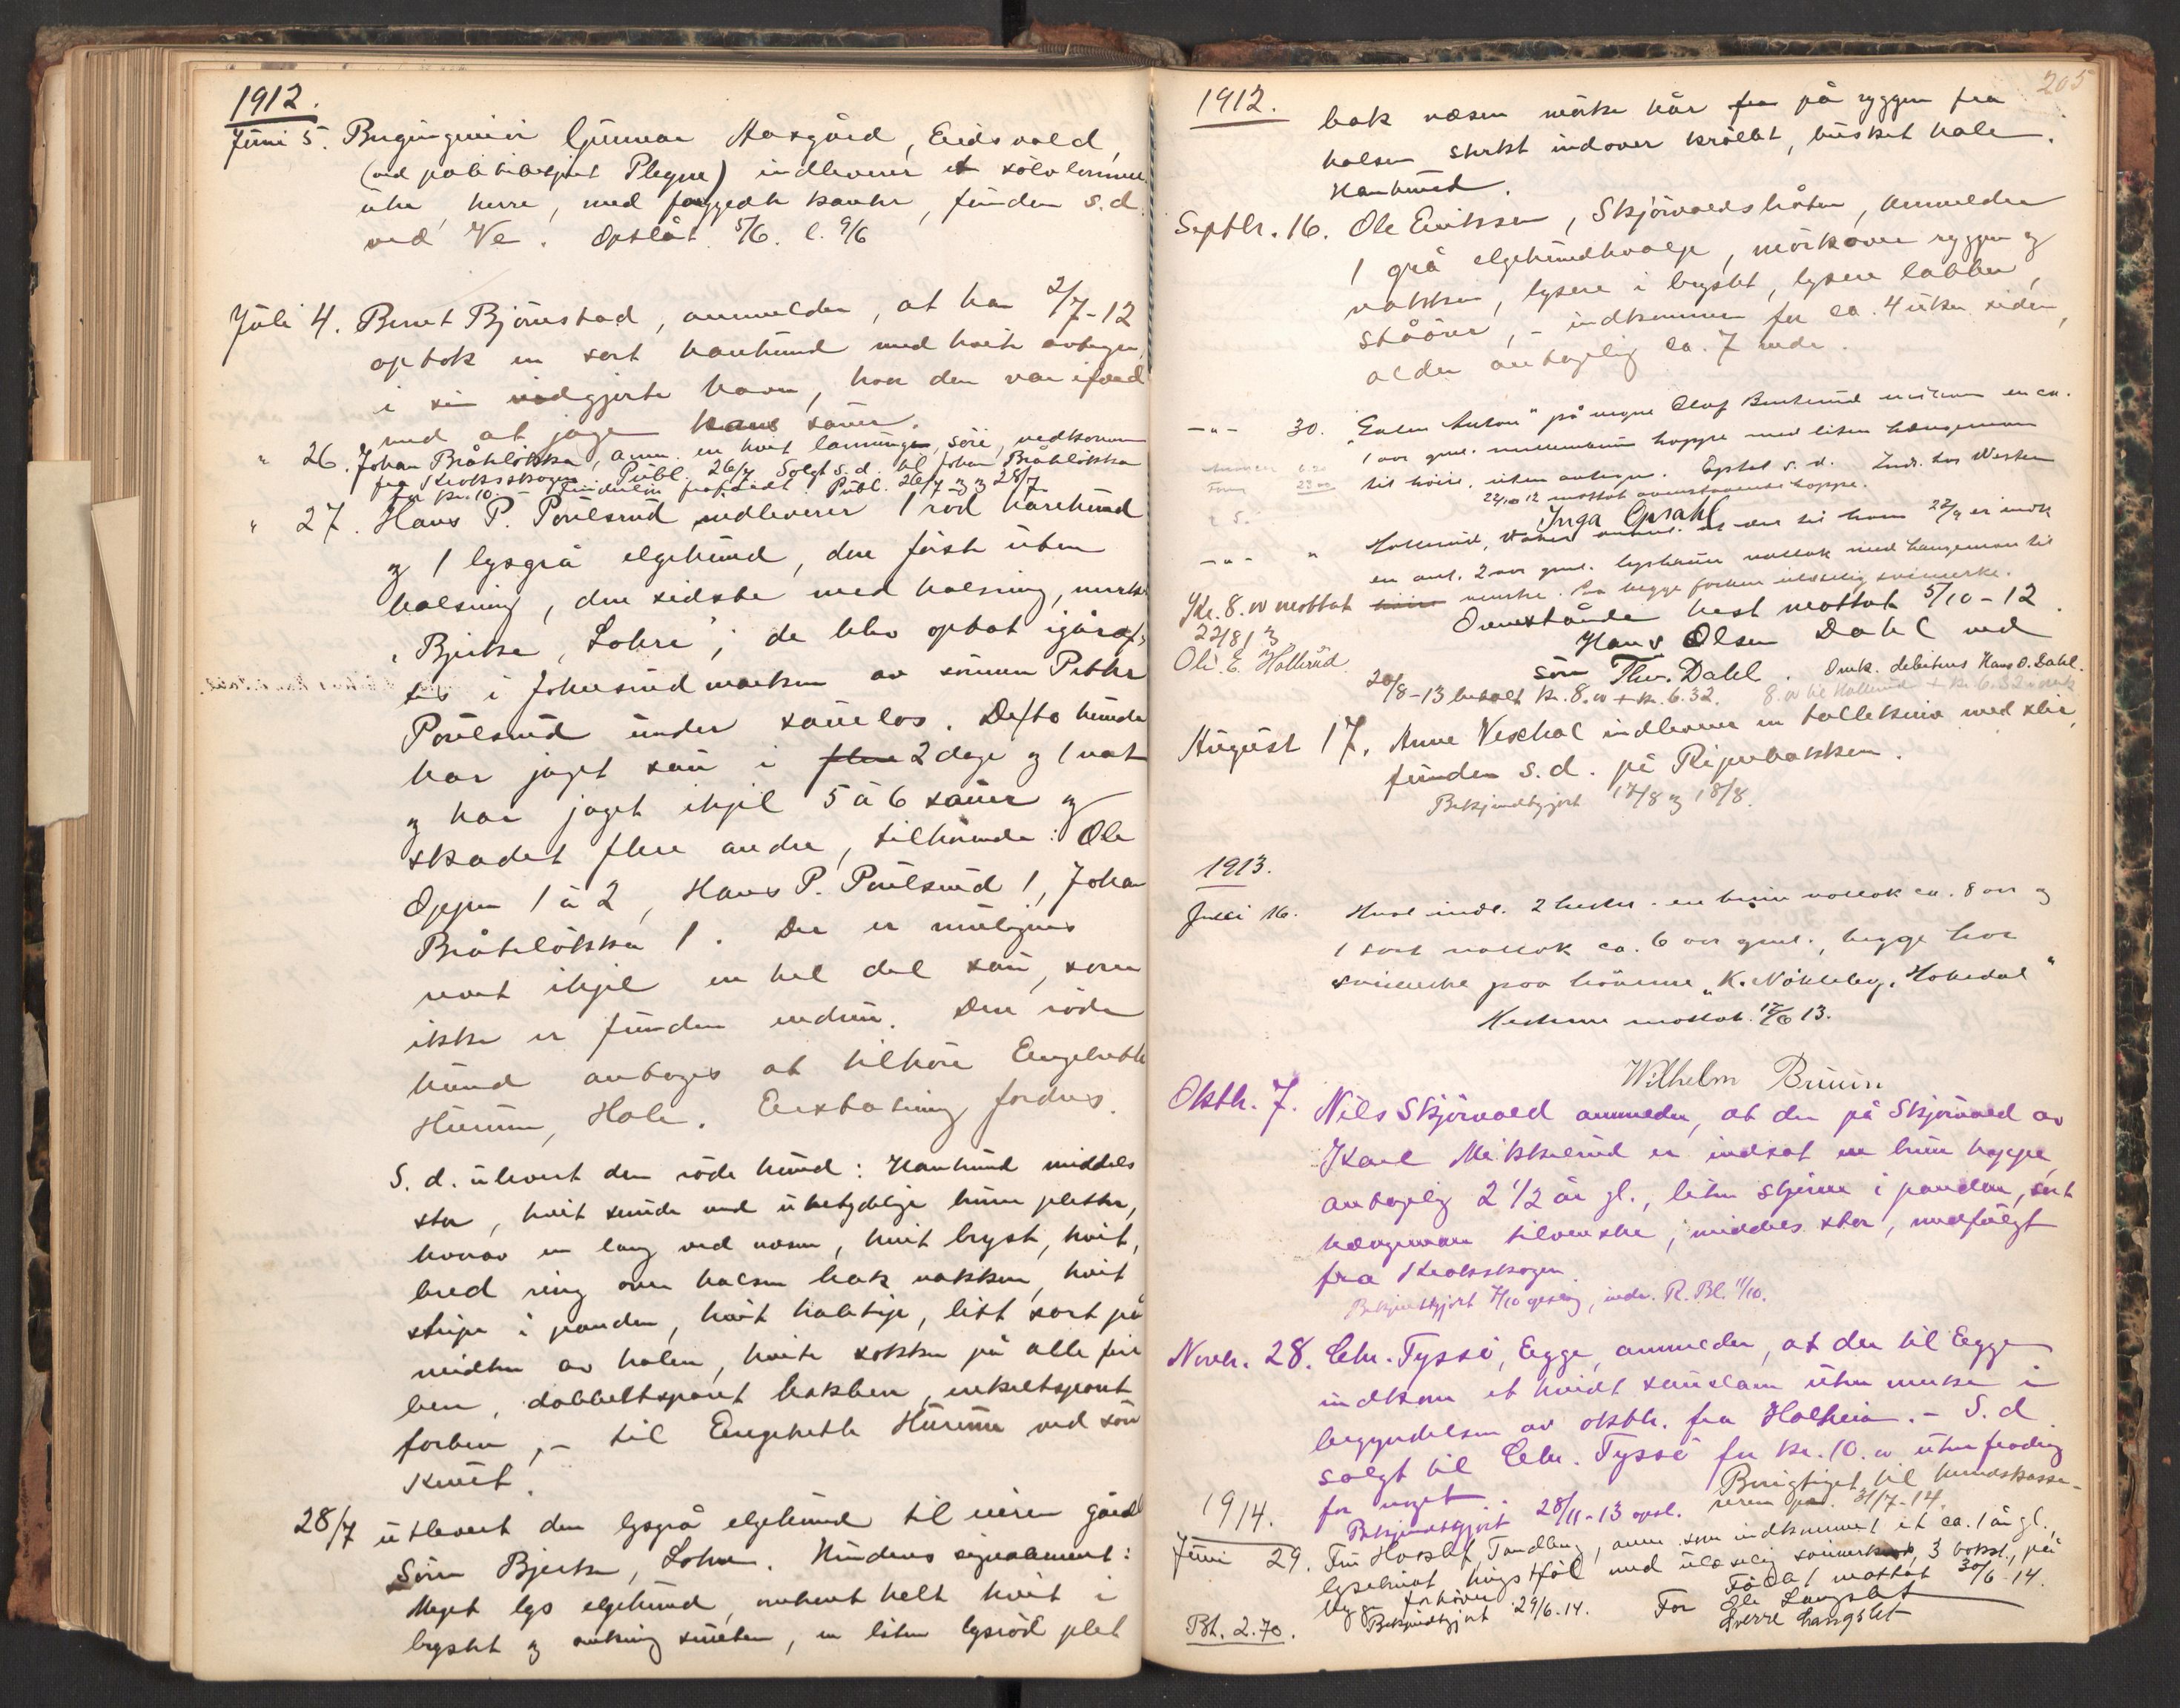 1912.
Juni 5. Bergingeniør Gunnar Aasgård, Eidsvold,
(ved politibetjent Plegne) indleverer et sølv lomme
uhr, herre, med forgyldte kanter, funden s.d.
ved Ve. Opslåt 5/6. l. 9/6
Juli 4. Bernt Bjørnstad, anmelder, at han 2/7-12
optok en sort hanhund med hvite avtegn,
i sin indgjerte havn, hvor den var ifærd
med at jage hans sauer.
" 26. Johan Bråteløkka, anm. en hvit lamunge, søie, nedkommen
fra Krokskogen Publ. 26/7 Solgt s.d. til Johan Bråteløkka
for kr. 10. - Publ. 26/7 og 28/7
" 27. Hans P. Poulsrud indleverer 1 rød harehund
og 1 lysgrå elgehund, den første uten
halsring, den sidste med halsring, merket
"Bjerke, Lohre"; de blev optat igåraf-
tes i Johnsrudmarken av sønnen Petter
Poulsrud under sauelos. Defto hunde
har jaget sau i flere 2 dage og 1 nat
og har jaget ihjel 5 à 6 sauer og
skadet flere andre, tilhørende: Ole
Oppen 1 à 2, Hans P. Poulsrud 1, Johan
Bråteløkka 1. Der er muligens
revet ihjel en hel del sau, som
ikke er funden endnu. Den røde
hund antages at tilhøre Engebreth
Hurum, Hole. Erstatning fordres.
S. d. utlevert den røde hund: Hanhund middels
stor, hvit snude med ubetydelige brune pletter,
hvorav en lang ved nesen, hvit bryst, hvit,
bred ring over halsen bak nakken, hvit
stripe i panden, hvit haletip, litt sort på
midten av halen, hvite sokker på alle fire
ben, dobbeltsporet bakben, enkeltsporet
forben, - til Engebreth Hurum ved søn
Knut.
28/7 utlevert den lysgrå elgehund til eieren gård
Søren Bjerke, Lohre. Hundens signalement:
Meget lys elgehund, omtrent helt hvit i
brystet og omkring snuten, en liten lysrød plet
205
1912.
bak nesen mørke hår fra på ryggen fra
halsen sterkt indover krøllet, busket hale
Hanhund.
Septbr. 16. Ole Eriksen, Skjørvoldshåten, anmelder
1 grå elgehundhvalp, mørk over ryggen og
nakken, lysere i brystet, lysere labber,
ståører, - indkommen for ca. 4 uker siden,
alder antagelig ca. 7 mdr.
-"- 30. på vegne Olaf en ca.
1 aar gml. hoppe med liten hængeman
til høire, uten avtegn. Opslåt s. d. Indr. hos
22/10 12 mottat ovenstaaende hoppe.
Inga Opsahl
-"- " Hollerud,
en ant. 2 aar gml. vallak med hængeman til
høire venstre. Paa begge forben ulæselig svimerke.
Kr. 8.00 mottat
22/8 13
Ole. E. Hollerud
Ovenstående hest mottat 5/10-12.
Hans Olsen Dahl ved
søn Thv. Dahl. Omk. debiteres Hans O. Dahl.
20/8-13 betalt kr. 8.00 + kr. 6.32. 8.00 til Hollerud + kr. 6.32 i omk
August 17. Anne Vexhal indleverer en tollekniv med slir,
funden s.d. på Ripebakken.
Bekjendtgjort 17/8 og 18/8.
1913.
Juni 16. indl. 2 hester. en brun vallak ca. 8 aar og
1 sort vallak ca. 6 aar gml., begge har
svimerke paa høvene "K. Nökleby, Holmedal"
Hestene mottat. 17/6 13.
Wilhelm Bruun
Oktbr. 7. Nils Skjørvold anmelder, at der på Skjørvold av
Karl Mikkelrud er indsat en brun hoppe,
antagelig 2 1/2 år gl., liten stjerne i panden, sort
hængeman tilvenstre, middels stor, medfulgt
fra Krokskogen.
Bekjendtgjort 7/10 opslag, indr. R. Bl. 11/10.
Novbr. 28. Chr. Tyssé, Egge, anmelder, at der til Egge
indkom et hvidt sauelam uten merke i
begyndelsen av oktbr. fra Holheia. - S. d.
solgt til Chr. Tyssé for kr. 10.00 uten fradrag
for noget
Bekjendtgjort 28/11-13 opsl.
Berigtiget til herredskasse-
reren pr. 31/7-14.
1914.
Juni 29. Fru Horslet, Tandberg, anm. som indkommet et ca. 1 år gl.
lysebrunt hingstføl med ulæselig svimerke, 3 bokst., på
begge forhøver.
Bekjendtgjort 29/6-14.
Føllet mottat 30/6-14.
For Ole Langslet
Sverre Langslet
Bt. 2.70.